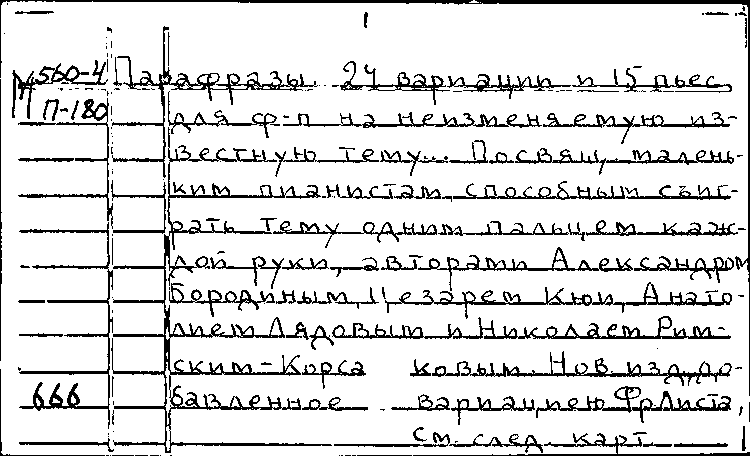 1
М 560-4 Парафразы. 24 вариации и 15 пьес
П-180 для ф-п на неизменяемую из-
вестную тему... Посвящ. малень-
ким пианистам, способным сыг-
рать тему одним пальцем каж-
дой руки, авторами Александром
Бородиным, Цезарем Кюи, Анато-
лием Лядовым и Николаем Рим-
ским-Корса ковым. Нов. изд., до-
666 бавленное вариациею Фр Листа,
См. след. карт.